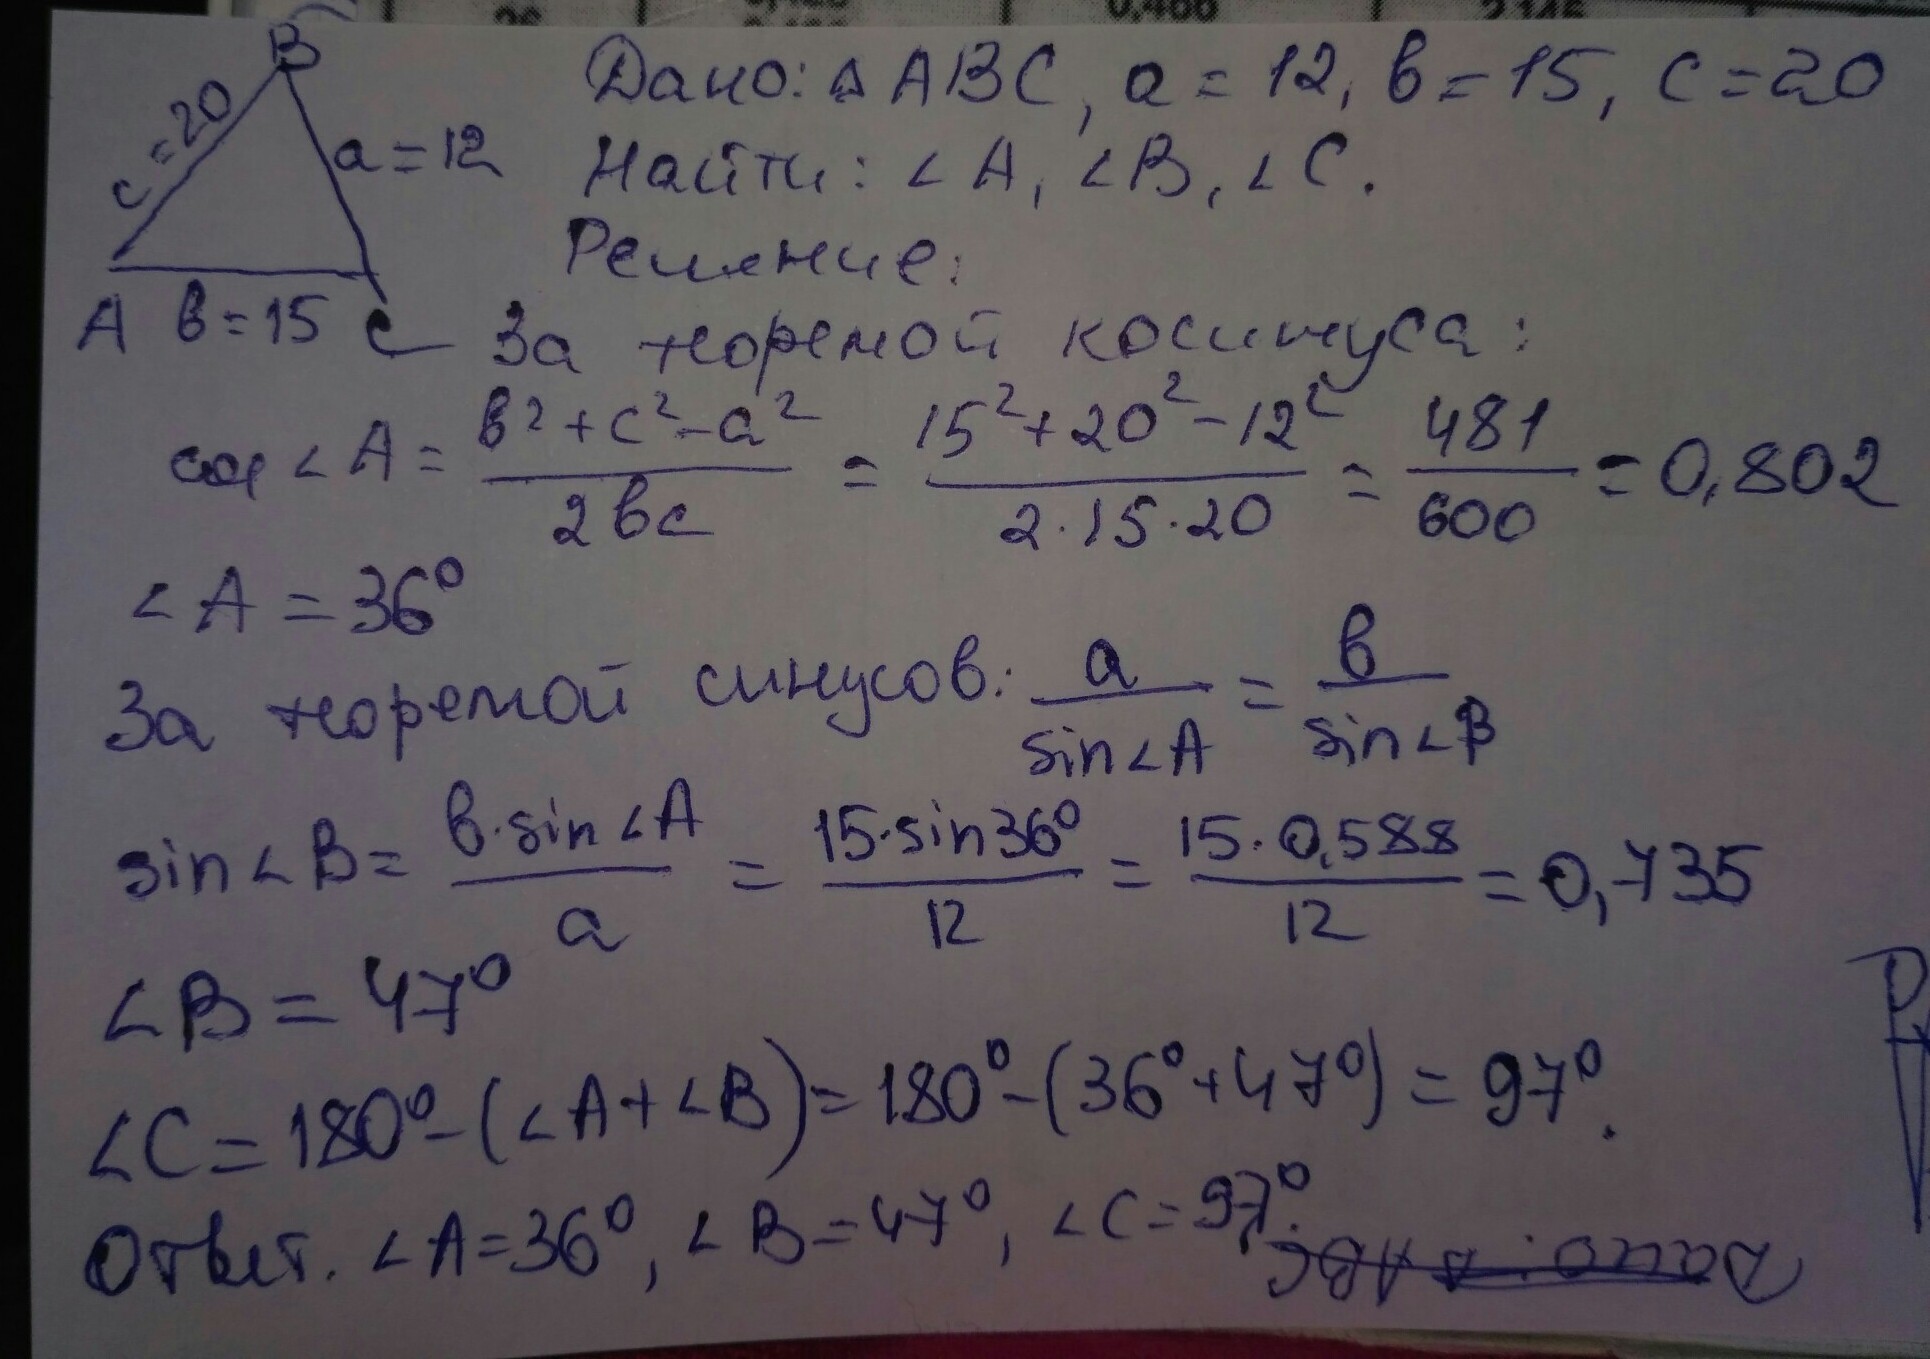 26
0,466
2,145
B
c=20
a=12
A b=15 C
Дано: △ABC, a=12, b=15, c=20
Найти: ∠A, ∠B, ∠C.
Решение:
За теоремой косинуса:
cos∠A = b²+c²-a² / 2bc = 15²+20²-12² / 2·15·20 = 481 / 600 = 0,802
∠A = 36°
За теоремой синусов: a / sin∠A = b / sin∠B
sin∠B = b·sin∠A / a = 15·sin36° / 12 = 15·0,588 / 12 = 0,735
∠B = 47°
∠C = 180°-(∠A+∠B) = 180°-(36°+47°) = 97°.
Ответ. ∠A=36°, ∠B=47°, ∠C=97°.
Дано: △ABC